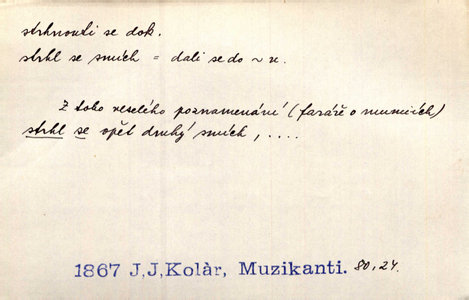 strhnouti se dok.
strhl se smích = dali se do ~ u.
Z toho veselého poznamenání (faráře o mumiích)
strhl se opět druhý smích, ....
1867 J,J,Kolàr, Muzikanti. 80,24.